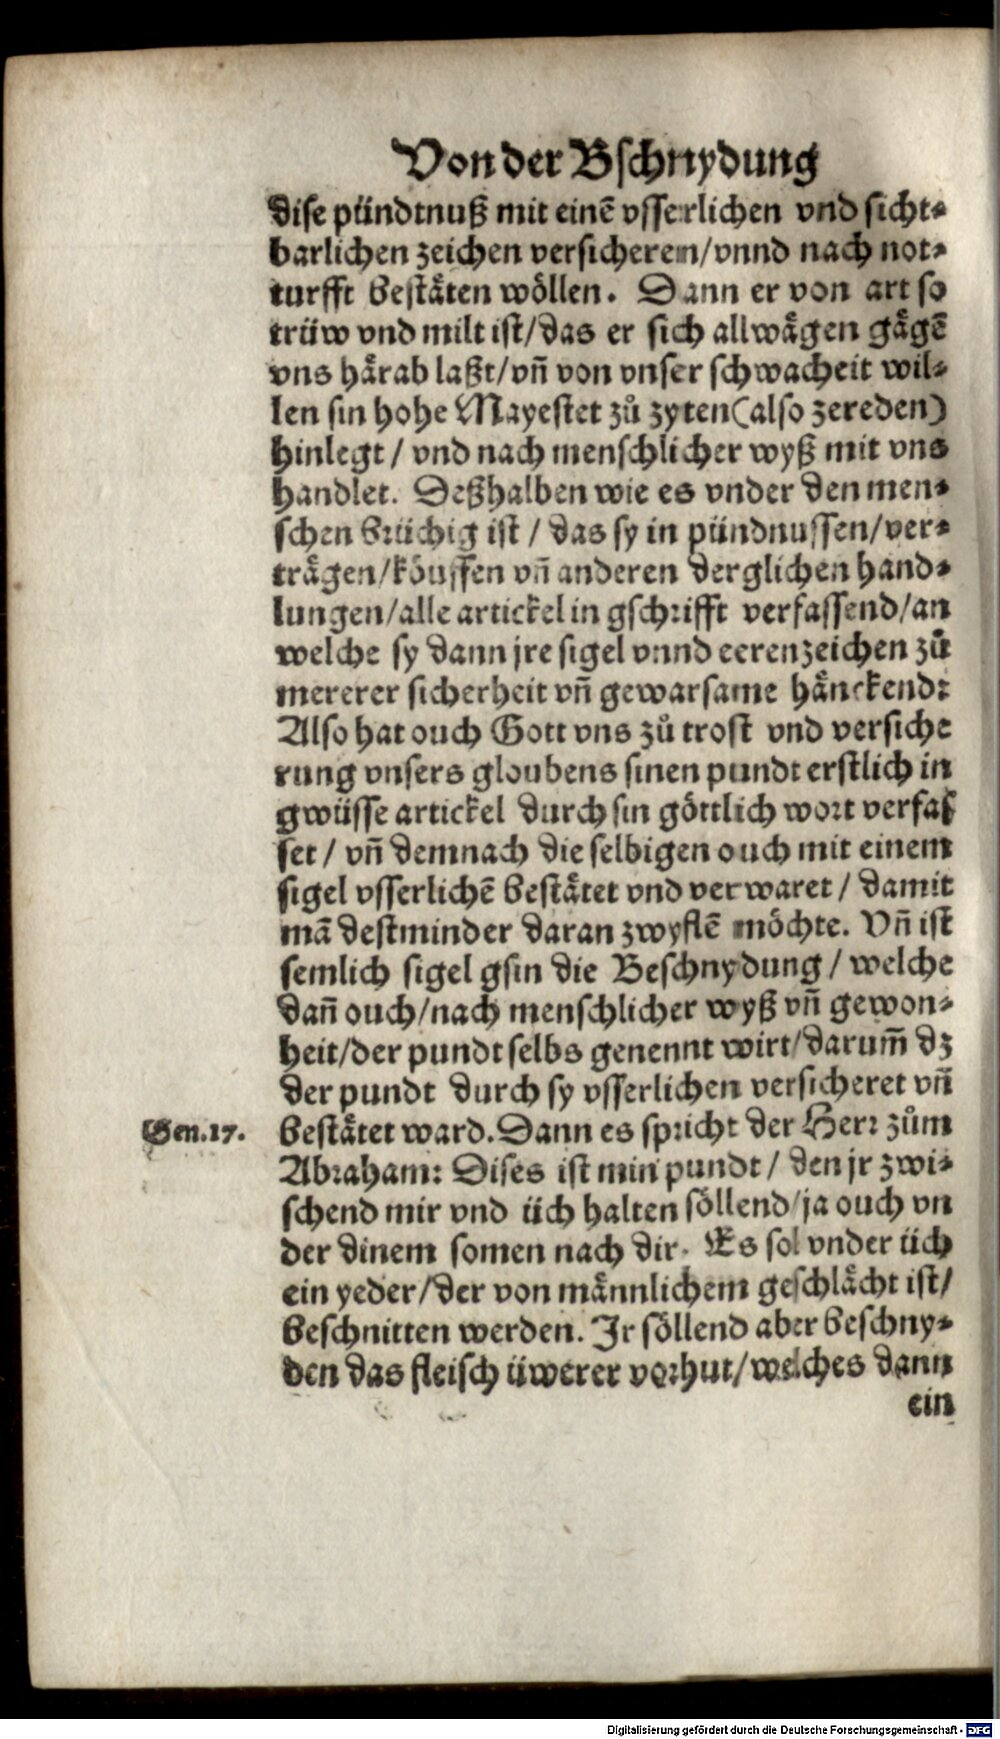 Von der Bschnydung
dise pündtnuß mit einē vsserlichen vnd sicht⸗
barlichen zeichen versicheren/vnnd nach not⸗
turfft bestäten wöllen. Dann er von art so
trüw vnd milt ist/das er sich allwågen gågē
vns hårab laßt/vn̄ von vnser schwacheit wil⸗
len sin hohe Mayestet zů zyten(also zereden)
hinlegt/ vnd nach menschlicher wyß mit vns
handlet. Deßhalben wie es vnder den men⸗
schen brüchig ist / das sy in pündnussen/ver⸗
trågen/köuffen vn̄ anderen derglichen hand⸗
lungen/alle artickel in gschrifft verfassend/an
welche sy dann jre sigel vnnd eerenzeichen zů
mererer sicherheit vn̄ gewarsame hånckend:
Also hat ouch Gott vns zů trost vnd versiche
rung vnsers gloubens sinen pundt erstlich in
gwüsse artickel durch sin göttlich wort verfas
set / vn̄ demnach die selbigen ouch mit einem
sigel vsserlichē beståtet vnd verwaret / damit
mā destminder daran zwyflē möchte. Vn̄ ist
semlich sigel gsin die Beschnydung / welche
dan̄ ouch/nach menschlicher wyß vn̄ gewon⸗
heit/der pundt selbs genennt wirt/darum̄ dz
der pundt durch sy vsserlichen versicheret vn̄
Gen.17. beståtet ward. Dann es spricht der Herr zům
Abraham: Dises ist min pundt / den jr zwi⸗
schend mir vnd üch halten söllend/ja ouch vn
der dinem somen nach dir. Es sol vnder üch
ein yeder/der von månnlichem geschlåcht ist/
beschnitten werden. Jr söllend aber beschny⸗
den das fleisch üwerer vorhut/welches dann
ein
Digitalisierung gefördert durch die Deutsche Forschungsgemeinschaft - DFG